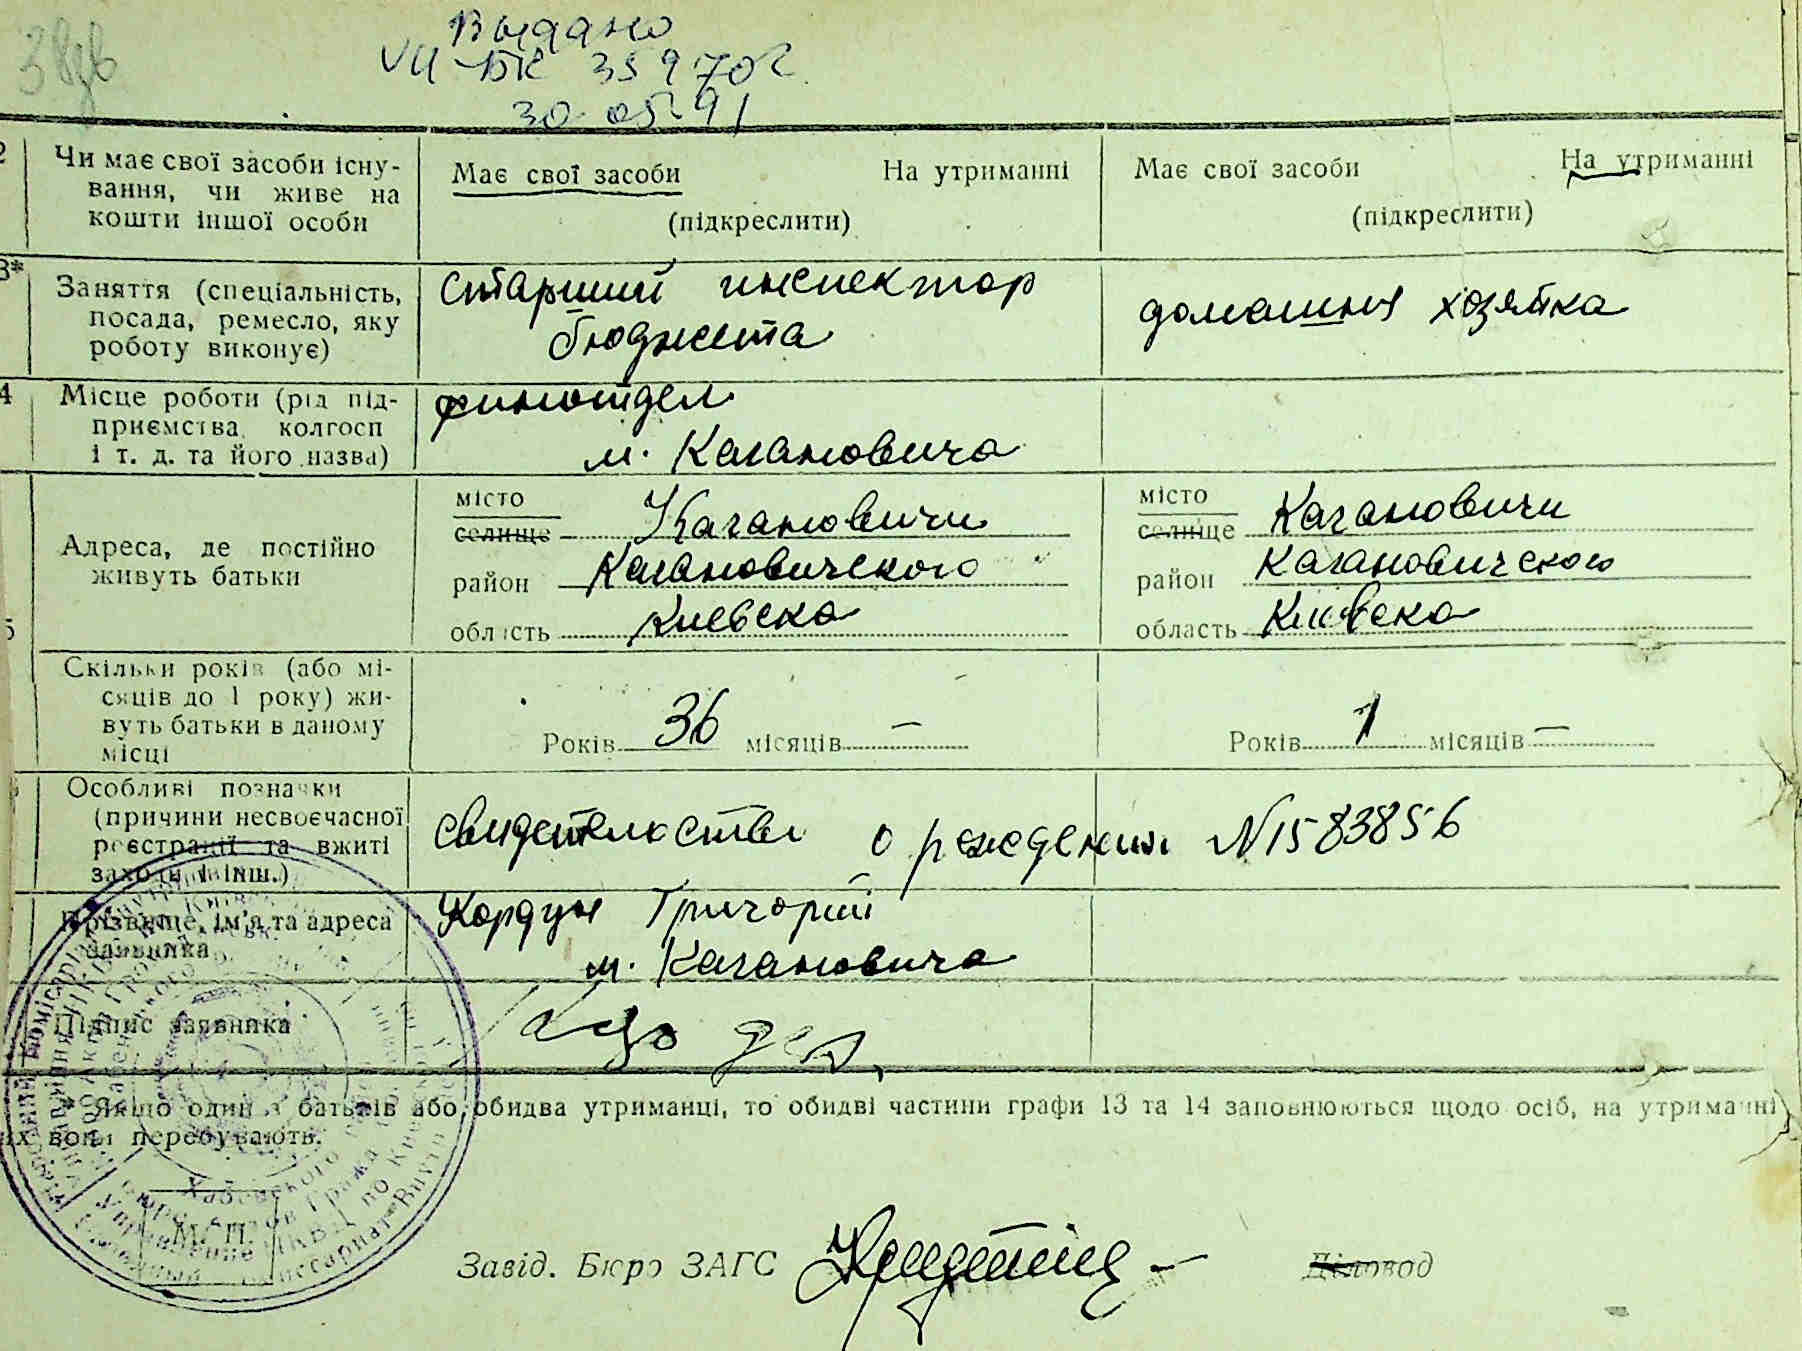 Выдано
VII-БК 359702
30.05.91
2 Чи має свої засоби існу-
вання, чи живе на
кошти іншої особи
Має свої засоби На утриманні
(підкреслити)
Має свої засоби На утриманні
(підкреслити)
3* Заняття (спеціальність,
посада, ремесло, яку
роботу виконує)
старший инспектор
бюджета
домашня хозяйка
4 Місце роботи (рід під-
приємства, колгосп
і т. д. та його назва)
финотдел
м. Кагановича
5 Адреса, де постійно
живуть батьки
місто
селище Кагановичи
район Кагановичского
область Киевска
місто
селище Кагановичи
район Кагановичского
область Киевска
Скільки років (або мі-
сяців до 1 року) жи-
вуть батьки в даному
місці
Років 36 місяців —
Років 1 місяців —
Особливі позначки
(причини несвоєчасної
реєстрації та вжиті
заходи і інш.)
свидетельство о рождении N1583856
Прізвище, ім'я та адреса
заявника
Кордун Григорій
м. Кагановича
Підпис заявника
* Якщо один з батьків або обидва утриманці, то обидві частини графи 13 та 14 заповнюються щодо осіб, на утриманні
их вони перебувають.
М. П.
Завід. Бюро ЗАГС
Діловод